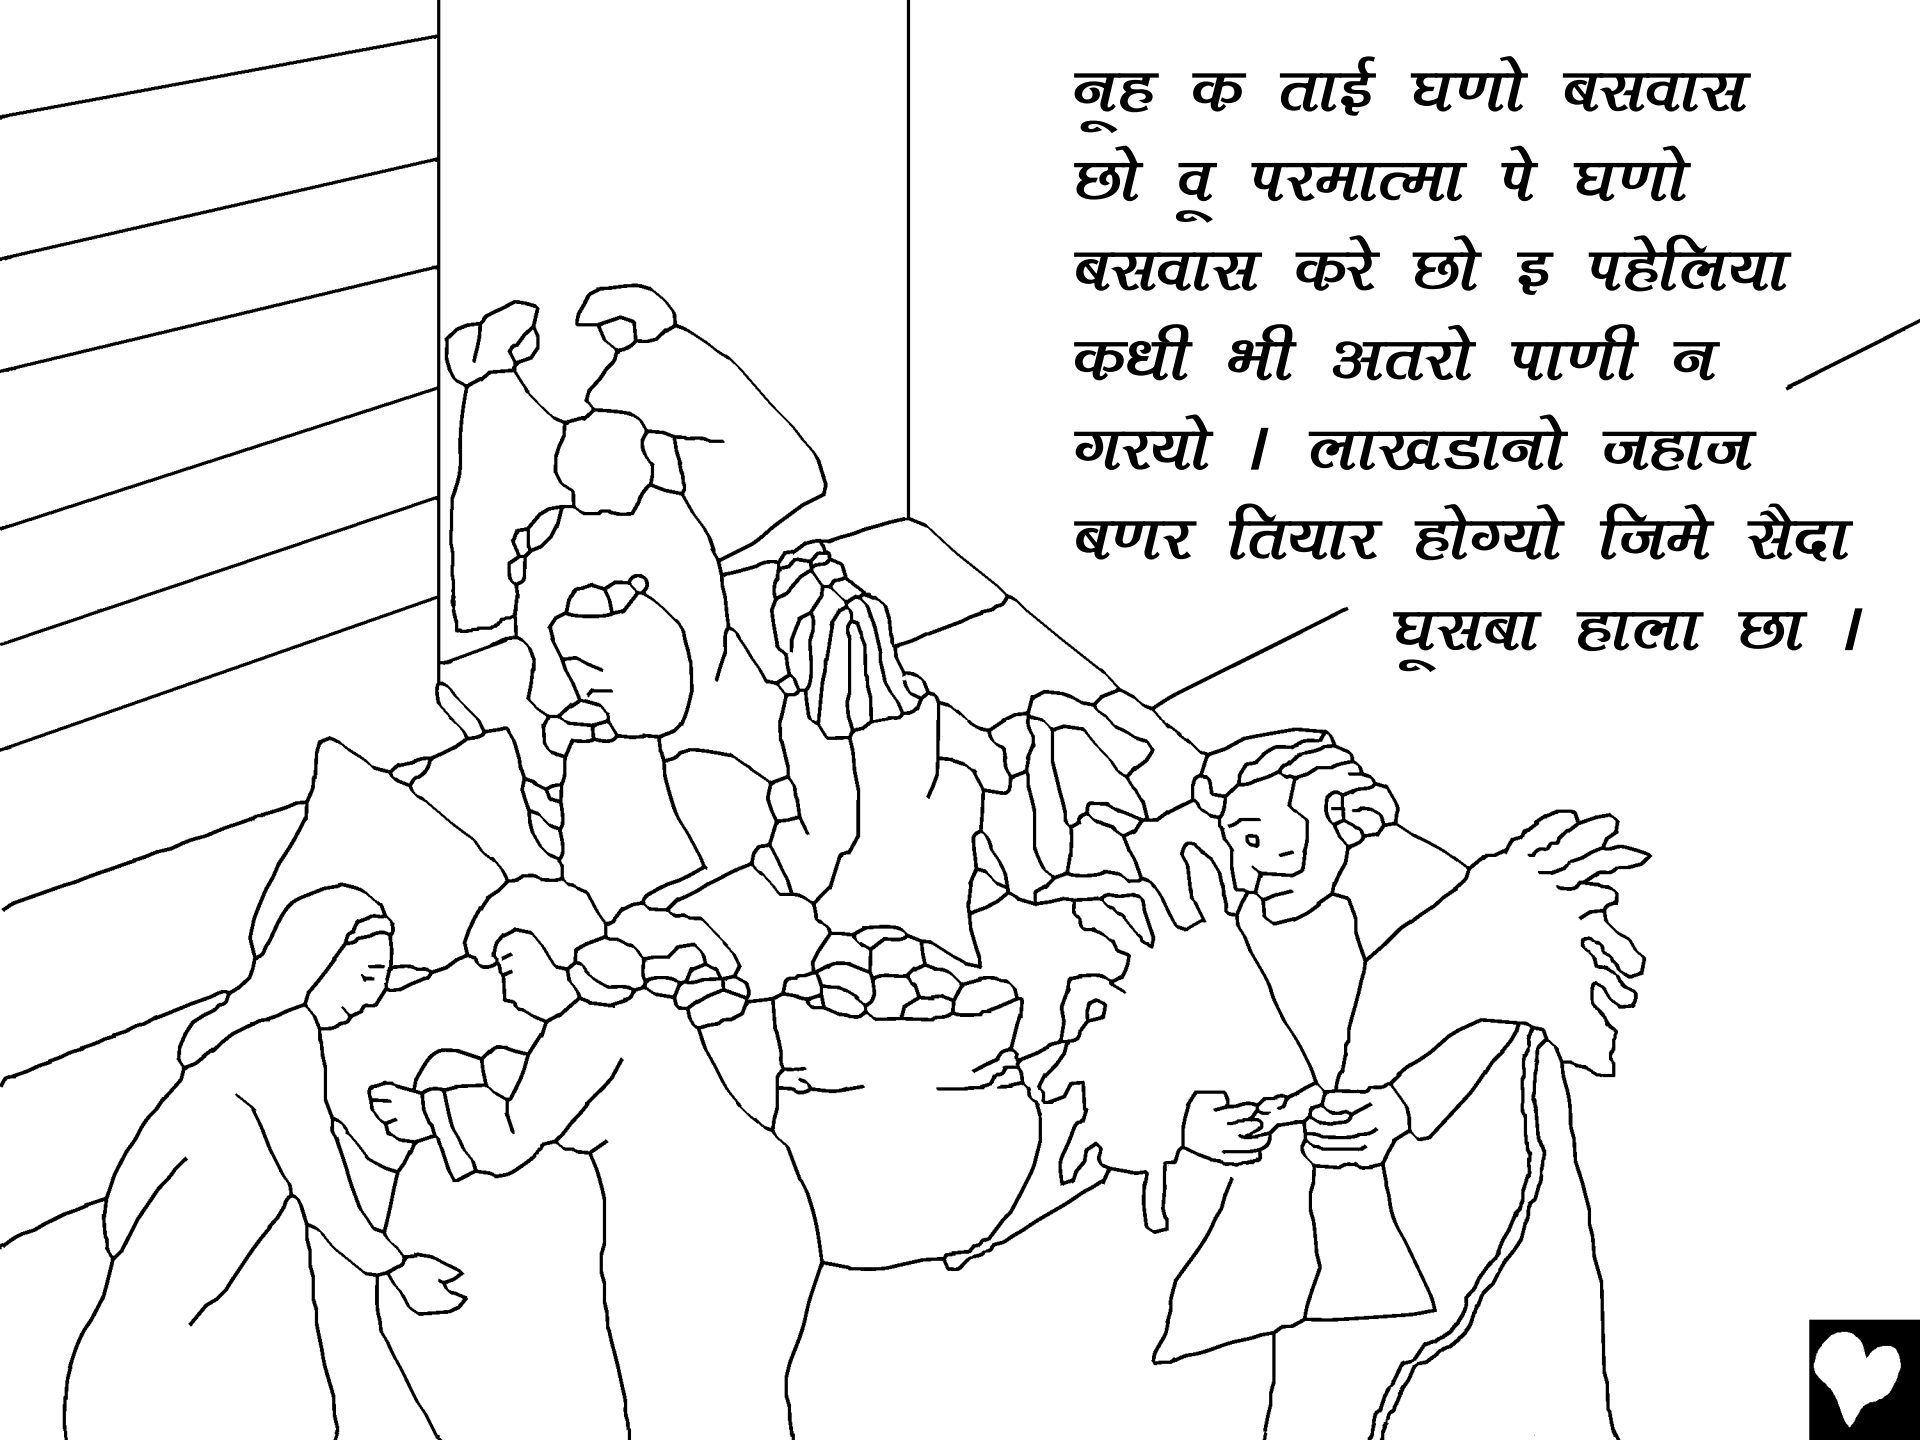 नूह क ताई घणो बसवास
छो वू परमात्मा पे घणो
बसवास करे छो इ पहेलिया
कधी भी अतरो पाणी न
गरयो । लाखडानो जहाज
बणर तियार होग्यो जिमे सैदा
घूसबा हाला छा ।